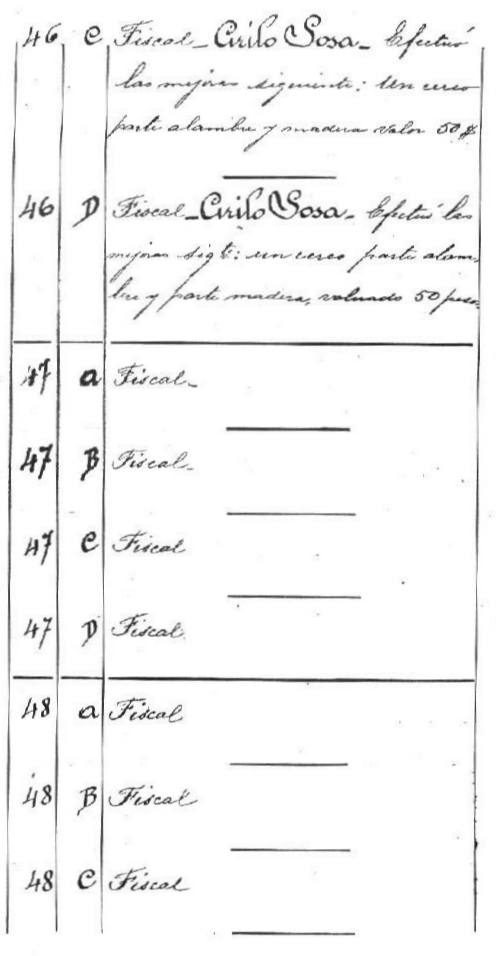 46 C Fiscal - Cirilo Sosa - Efectuó
las mejoras siguiente: Un cerco
parte alambre y madera valor 50 $
46 D Fiscal - Cirilo Sosa - Efectuó las
mejoras sigte: un cerco parte alam-
bre y parte madera, valuado 50 pesos.
47 a Fiscal -
47 B Fiscal -
47 C Fiscal
47 D Fiscal
48 a Fiscal
48 B Fiscal
48 C Fiscal